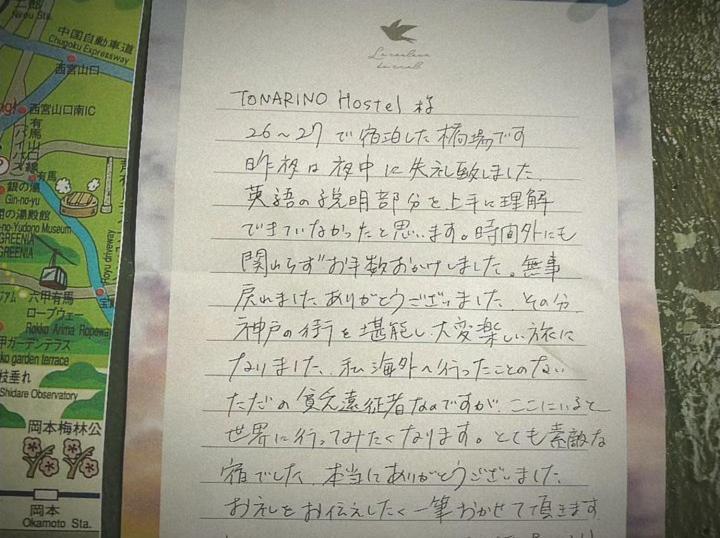 二郎
Nirou Sta.
中国自動車道
Chugoku Expressway
西宮山口
西宮山口南IC
有馬
銀の湯
Gin-no-yu
の湯殿館
o-Yudono Museum
GREENIA
GREENIA
六甲有馬
ロープウェー
Rokko Arima Ropeway
甲ガーデンテラス
ko garden terrace
枝垂れ
Shidare Observatory
岡本梅林公
岡本
Okamoto Sta.
TONARINO Hostel 様
26〜27で宿泊した橋場です
昨夜は夜中に失礼致しました。
英語の説明部分を上手に理解
できていなかったと思います。時間外にも
関わらずお手数おかけしました。無事
戻れました ありがとうございました。その分、
神戸の街を堪能し大変楽しい旅に
なりました。私 海外へ行ったことのない
ただの貧乏遠征者なのですが、ここにいると
世界に行ってみたくなります。とても素敵な
宿でした。本当にありがとうございました
お礼をお伝えしたく一筆おかせて頂きます